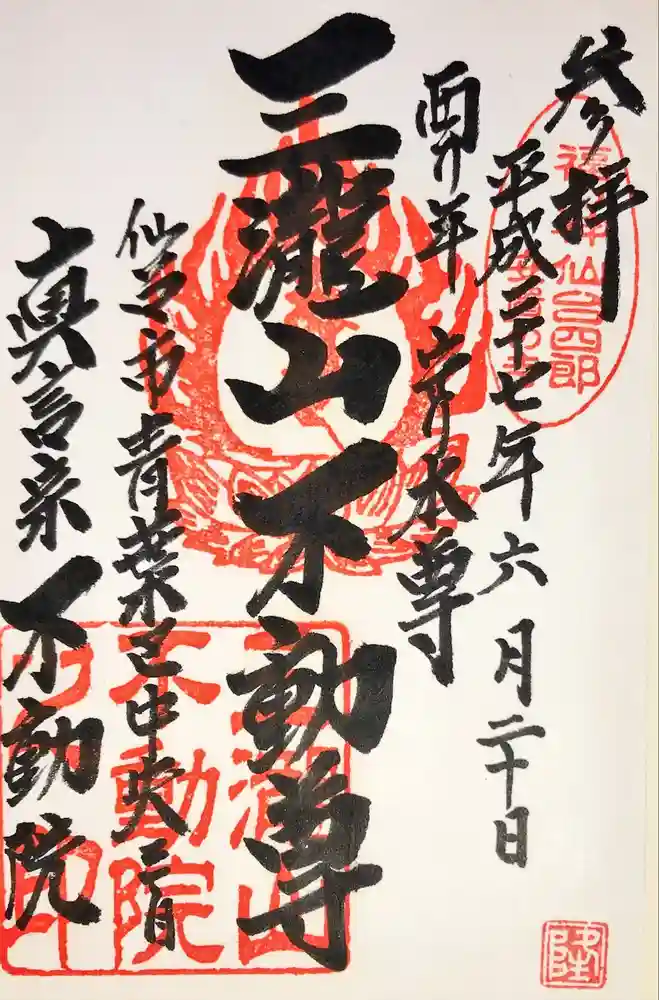 参拝
平成二十七年六月二十日
酉年 守本尊
三瀧山不動尊
仙台市青葉区中央二丁目
真言宗 不動院
仙台四郎
三瀧山
不動院